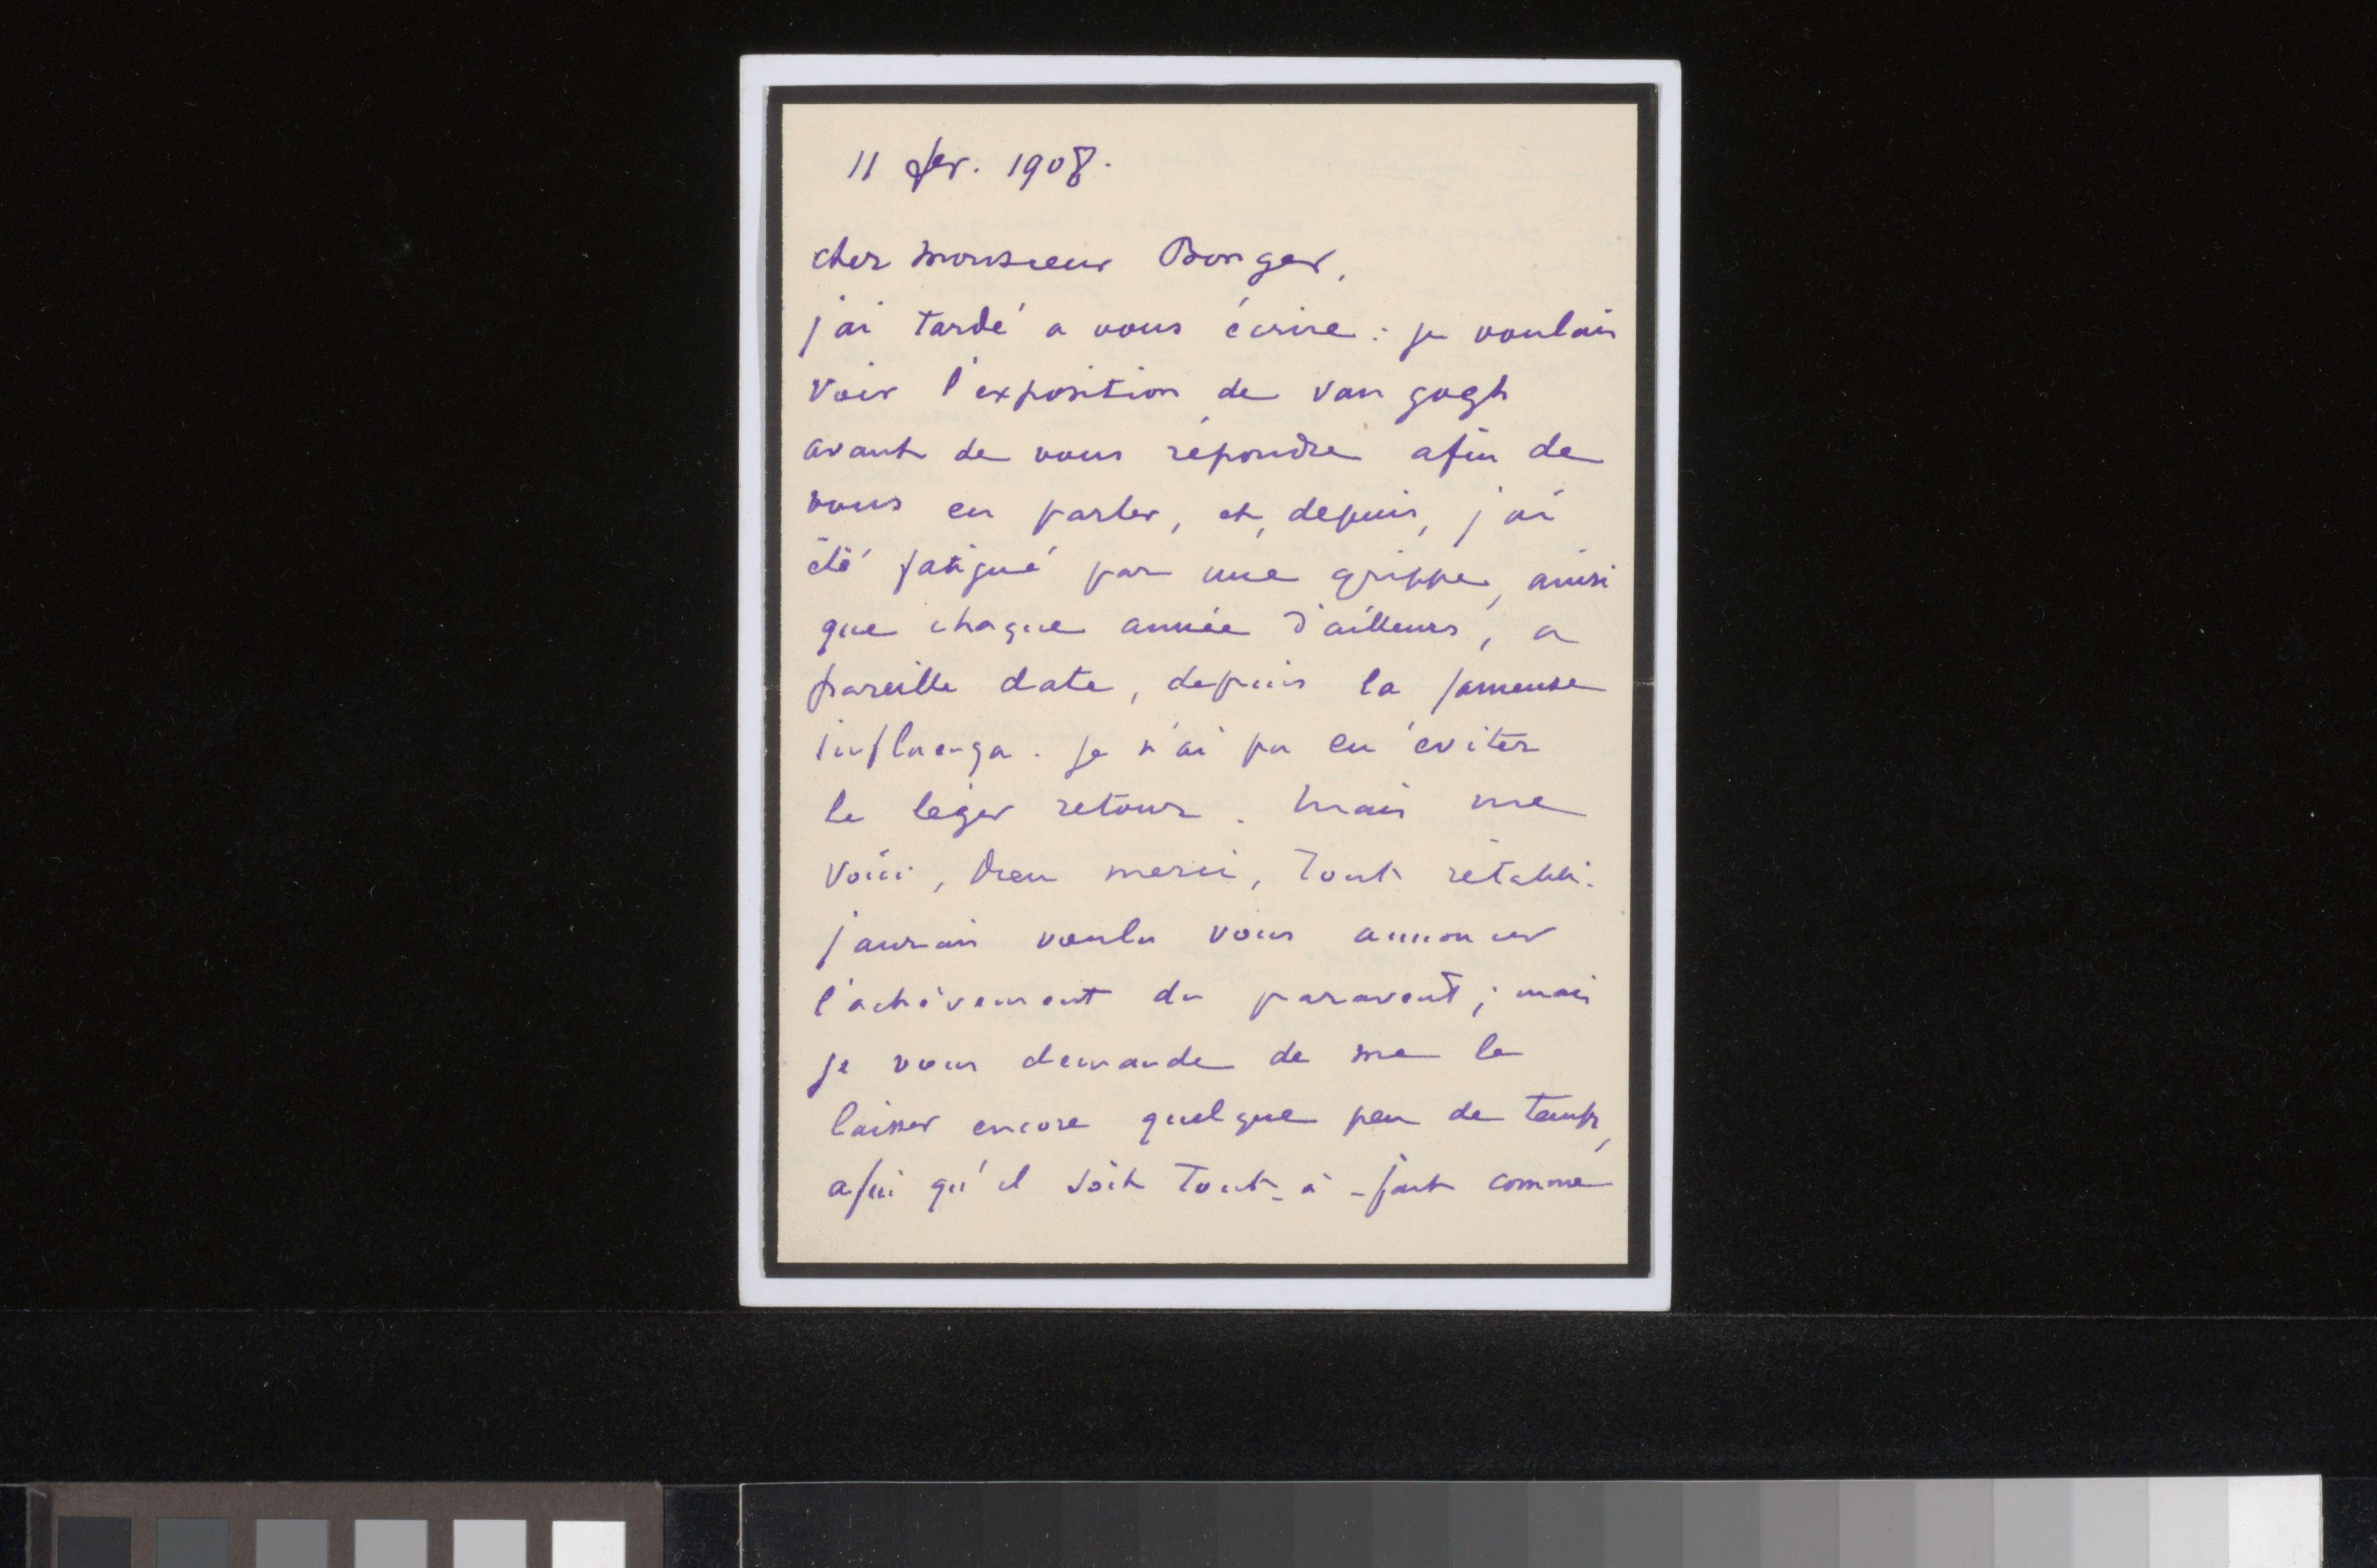 11 fev. 1908.
cher monsieur Bonger,
j'ai tardé a vous écrire : je voulais
voir l'exposition de van gogh
avant de vous répondre afin de
vous en parler, et, depuis, j'ai
été fatigué par une grippe, ainsi
que chaque année d'ailleurs, a
pareille date, depuis la fameuse
influenza. je n'ai pu en éviter
le léger retour. Mais me
voici, Dieu merci, tout rétabli.
j'aurais voulu vous annoncer
l'achèvement du paravent ; mais
je vous demande de me le
laisser encore quelque peu de temps,
afin qu'il soit tout-à-fait comme